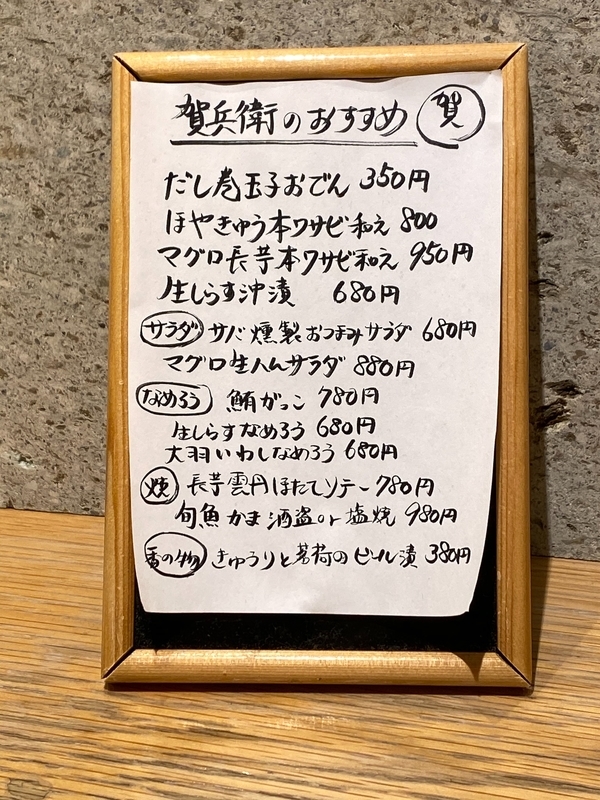 賀兵衛のおすすめ 賀
だし巻玉子おでん 350円
ほやきゅう本ワサビ和え 800
マグロ長芋本ワサビ和え 950円
生しらす沖漬 680円
サラダ サバ燻製おつまみサラダ 680円
マグロ生ハムサラダ 880円
なめろう 鮪がっこ 780円
生しらすなめろう 680円
大羽いわしなめろう 680円
焼 長芋雲丹ほたてソテー 780円
旬魚かま酒盗or塩焼 980円
香の物 きゅうりと茗荷のビール漬 380円